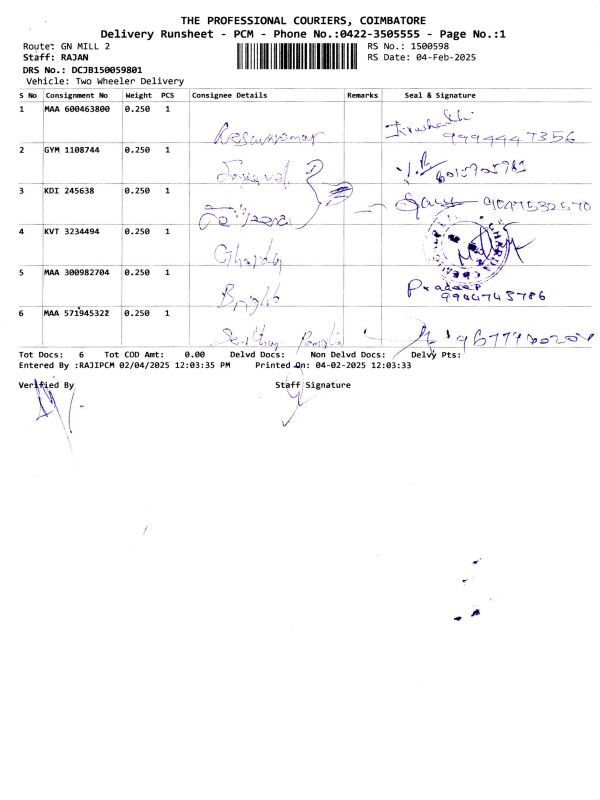 THE PROFESSIONAL COURIERS, COIMBATORE
Delivery Runsheet - PCM - Phone No.:0422-3505555 - Page No.:1
Route: GN MILL 2 RS No.: 1500598
Staff: RAJAN RS Date: 04-Feb-2025
DRS No.: DCJB150059801
Vehicle: Two Wheeler Delivery
S No Consignment No Weight PCS Consignee Details Remarks Seal & Signature
1 MAA 600463800 0.250 1
9994447356
2 GYM 1108744 0.250 1
3 KDI 245638 0.250 1
4 KVT 3234494 0.250 1
5 MAA 300982704 0.250 1 Bright Pradeep
9944745786
6 MAA 571945322 0.250 1
Tot Docs: 6 Tot COD Amt: 0.00 Delvd Docs: Non Delvd Docs: Delvy Pts:
Entered By :RAJIPCM 02/04/2025 12:03:35 PM Printed On: 04-02-2025 12:03:33
Verified By Staff Signature